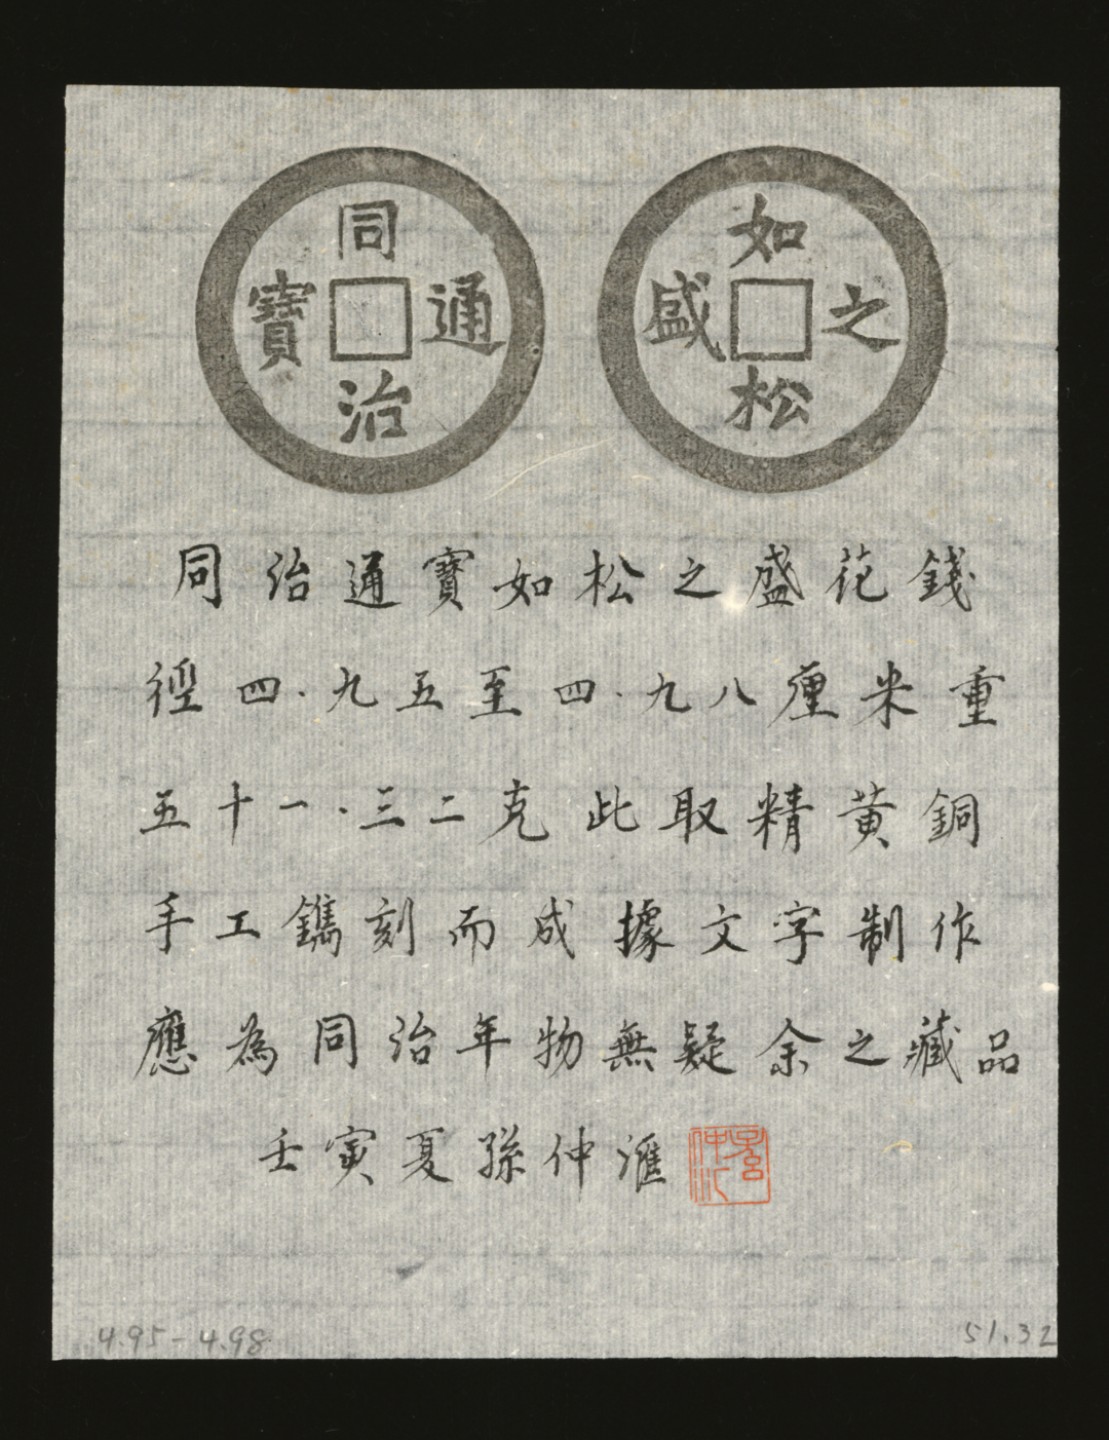 同治通寶
如松之盛
同治通寶如松之盛花錢
徑四.九五至四.九八厘米重
五十一.三二克此取精黃銅
手工鐫刻而成據文字制作
應為同治年物無疑余之藏品
壬寅夏孫仲滙
4.95-4.98
51.32